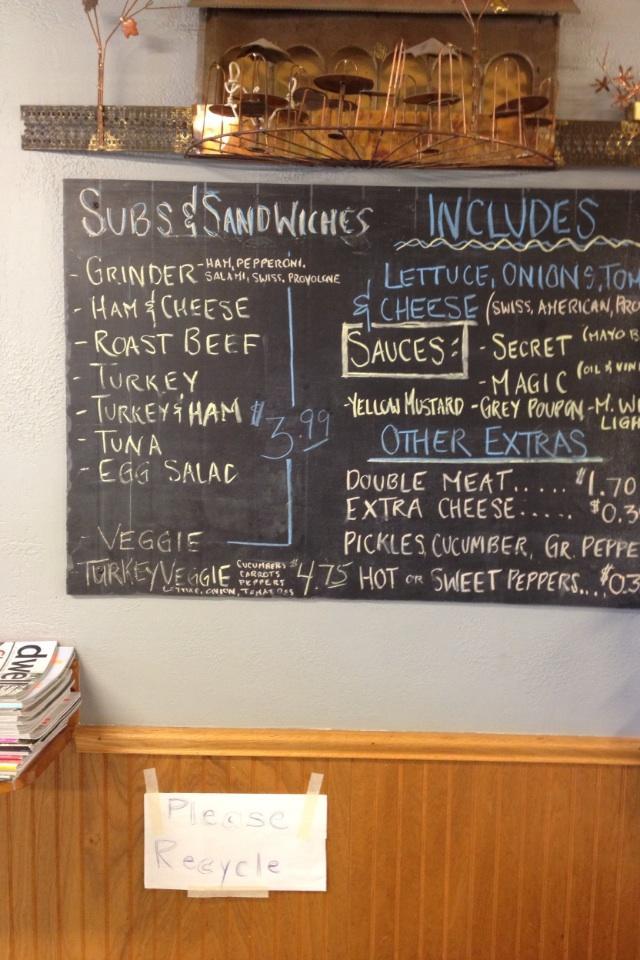 SUBS & SANDWICHES
- GRINDER - HAM, PEPPERONI,
SALAMI, SWISS, PROVOLONE
- HAM & CHEESE
- ROAST BEEF
- TURKEY
- TURKEY & HAM
- TUNA
- EGG SALAD
$3.99
- VEGGIE
TURKEY VEGGIE CUCUMBERS
CARROTS
PEPPERS
LETTUCE, ONION, TOMATOES
$4.75
INCLUDES
LETTUCE, ONIONS, TOM
& CHEESE (SWISS, AMERICAN, PRO
SAUCES: - SECRET (MAYO B
- MAGIC (OIL & VIN
- YELLOW MUSTARD - GREY POUPON - M. W
LIGH
OTHER EXTRAS
DOUBLE MEAT..... $1.70
EXTRA CHEESE..... $0.3
PICKLES, CUCUMBER, GR. PEPPE
HOT OR SWEET PEPPERS... $0.3
dwel
Please
Recycle